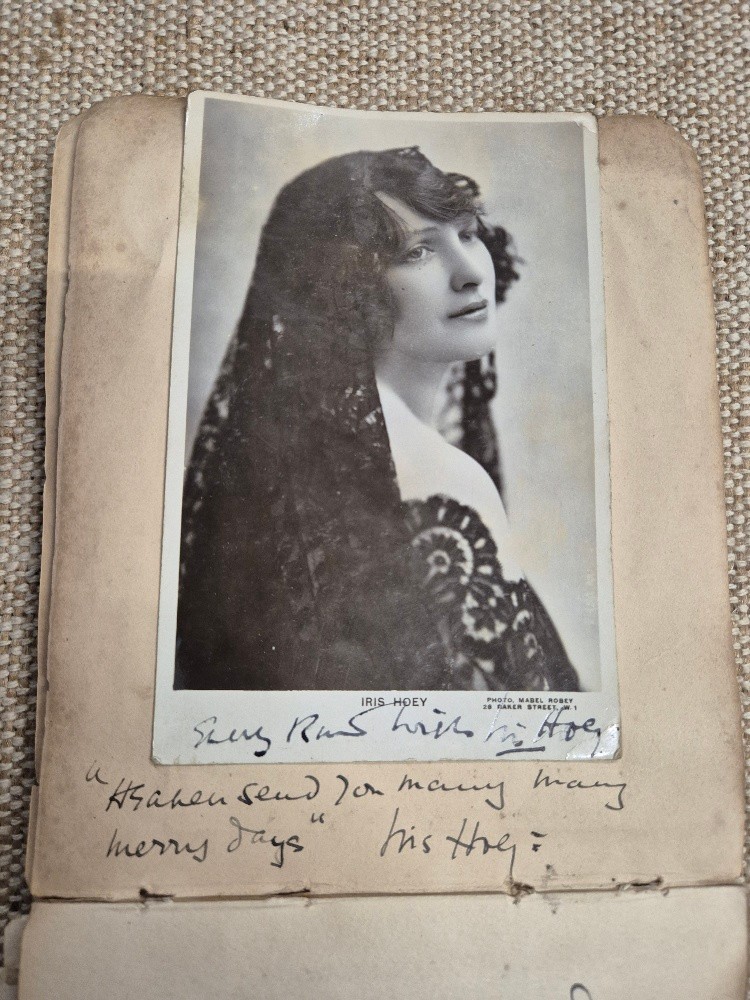 IRIS HOEY
PHOTO, MABEL ROBEY
28 BAKER STREET, W.1
Every Kind Wish Iris Hoey
"Heaven send you many many
merry days" Iris Hoey =